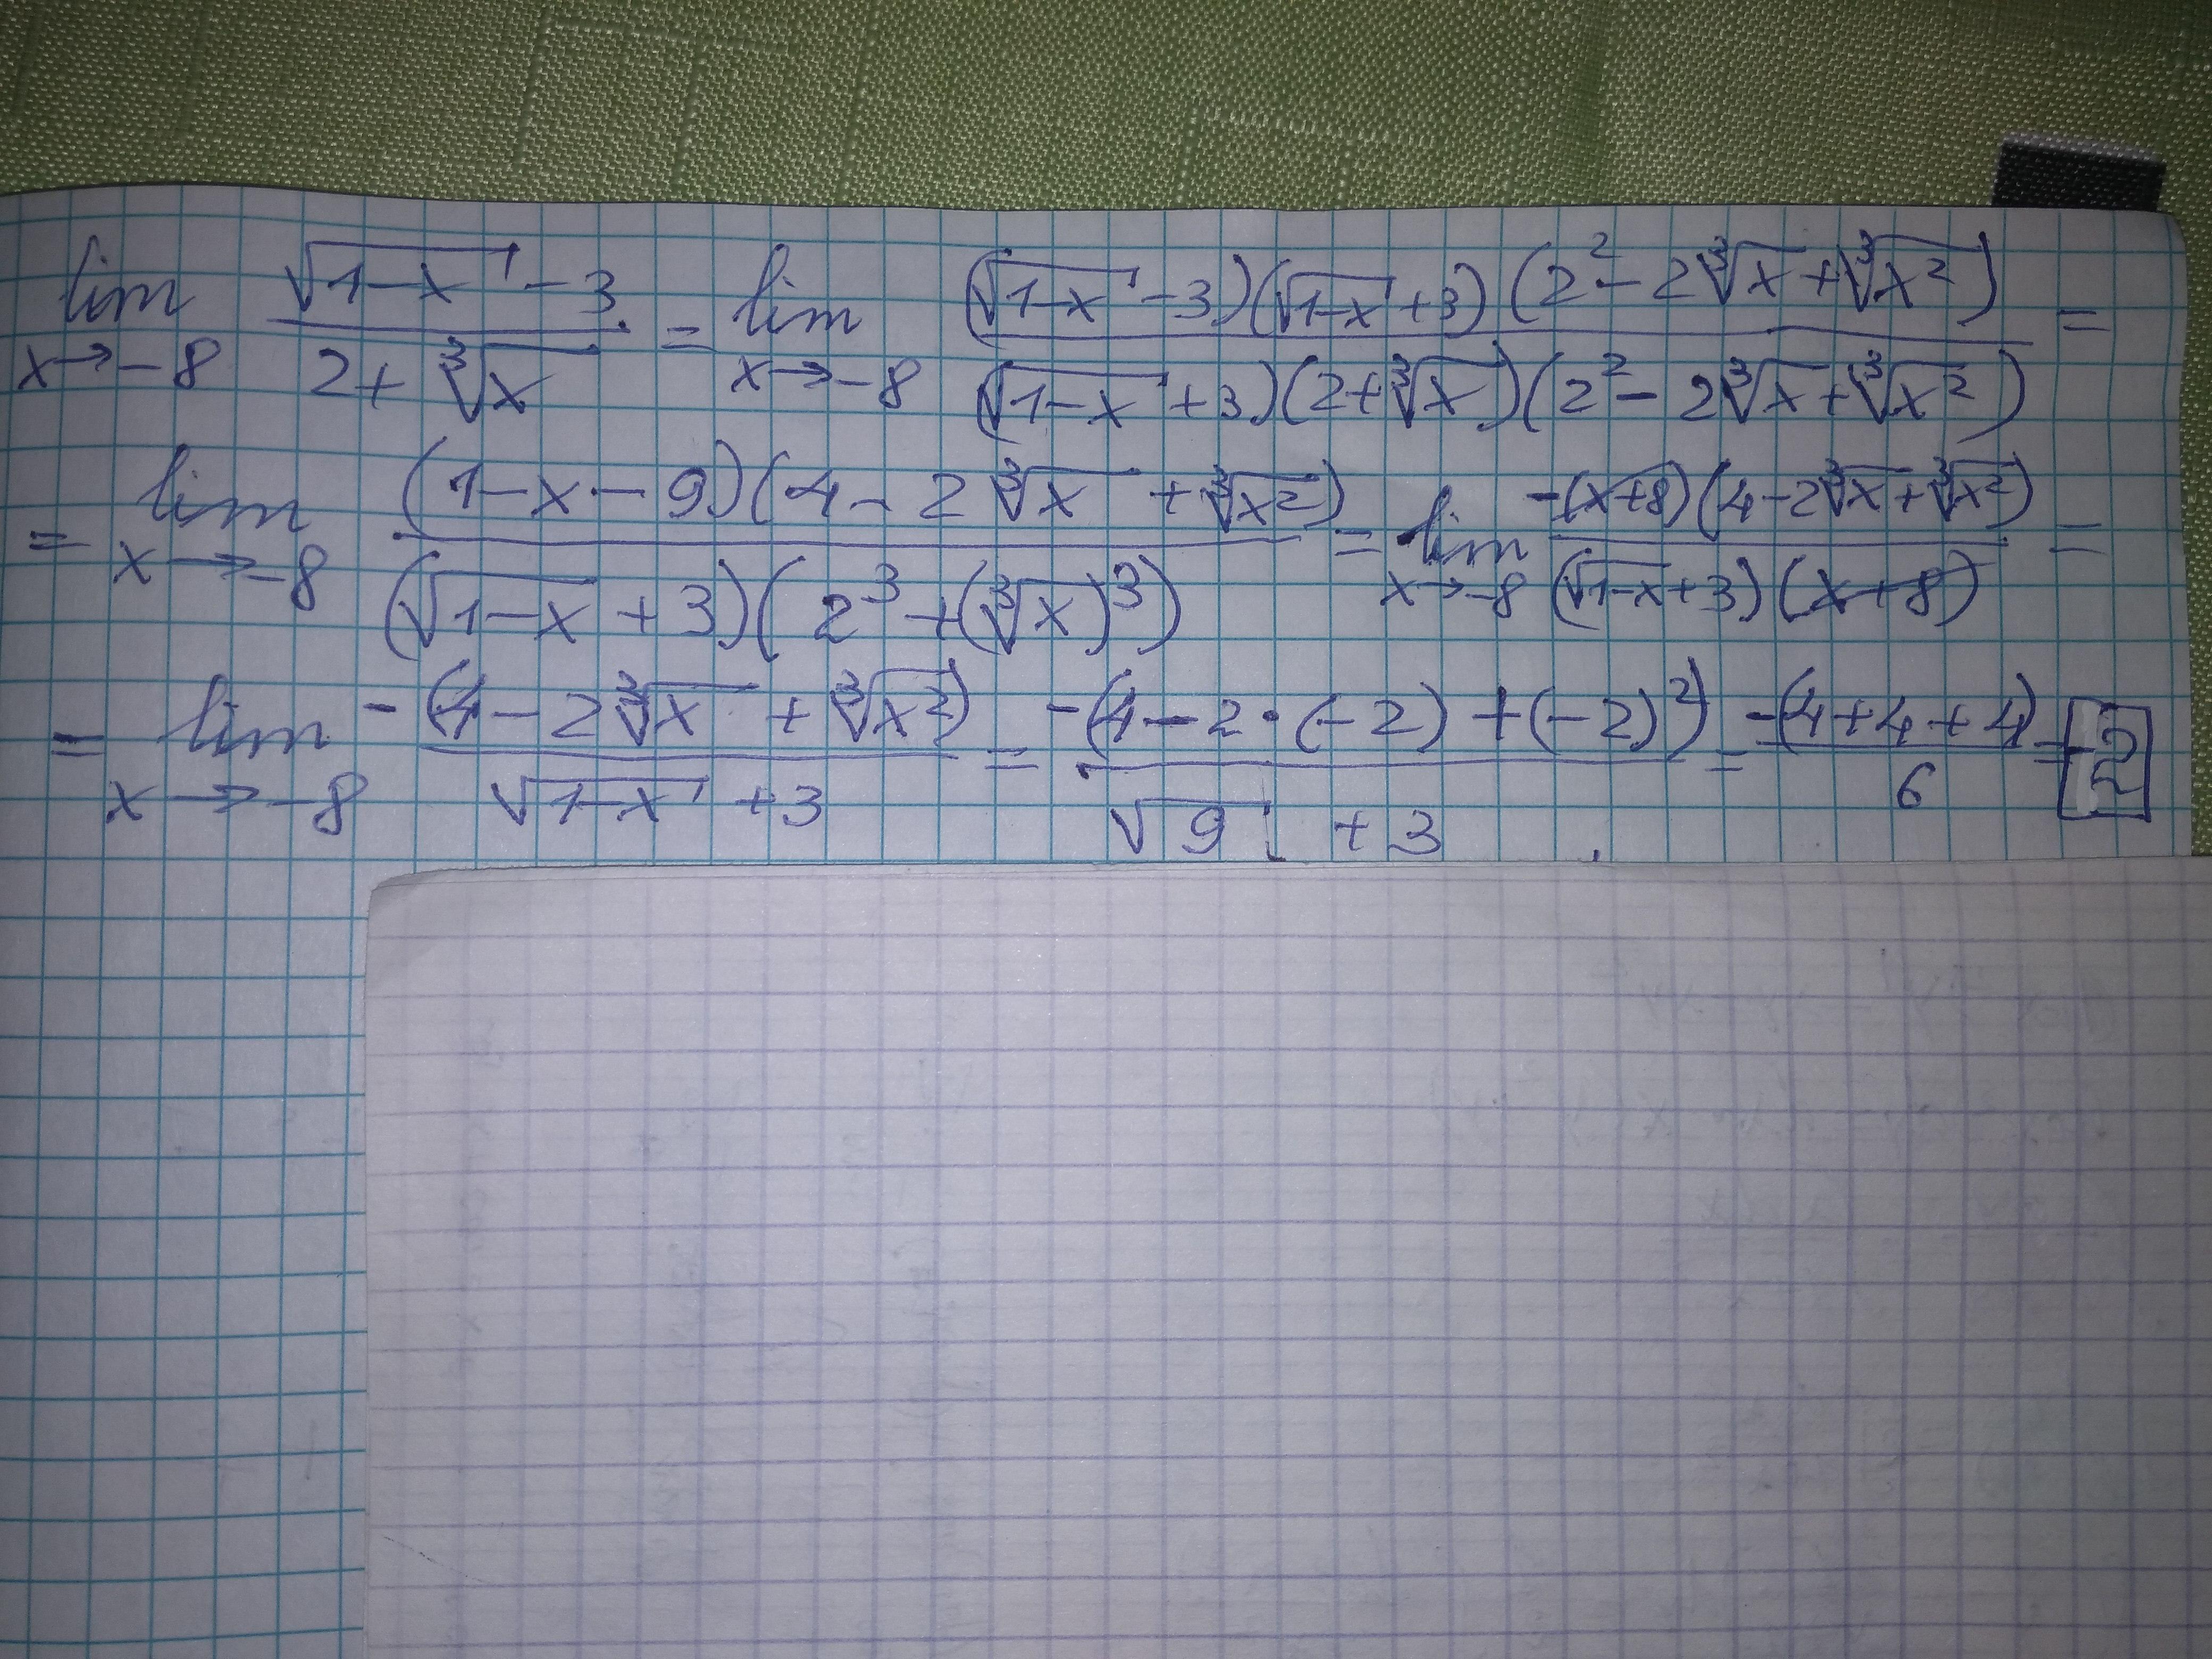 lim x→-8 (√(1-x) - 3)/(2+∛x) = lim x→-8 ((√(1-x) - 3)(√(1-x) + 3)(2² - 2∛x + ∛x²))/((√(1-x) + 3)(2+∛x)(2² - 2∛x + ∛x²)) =
= lim x→-8 ((1-x-9)(4 - 2∛x + ∛x²))/((√(1-x) + 3)(2³ + (∛x)³)) = lim x→-8 (-(x+8)(4 - 2∛x + ∛x²))/((√(1-x) + 3)(x+8)) =
= lim x→-8 (-(4 - 2∛x + ∛x²))/(√(1-x) + 3) = (-(4 - 2·(-2) + (-2)²))/(√9 + 3) = (-(4+4+4))/6 = -2